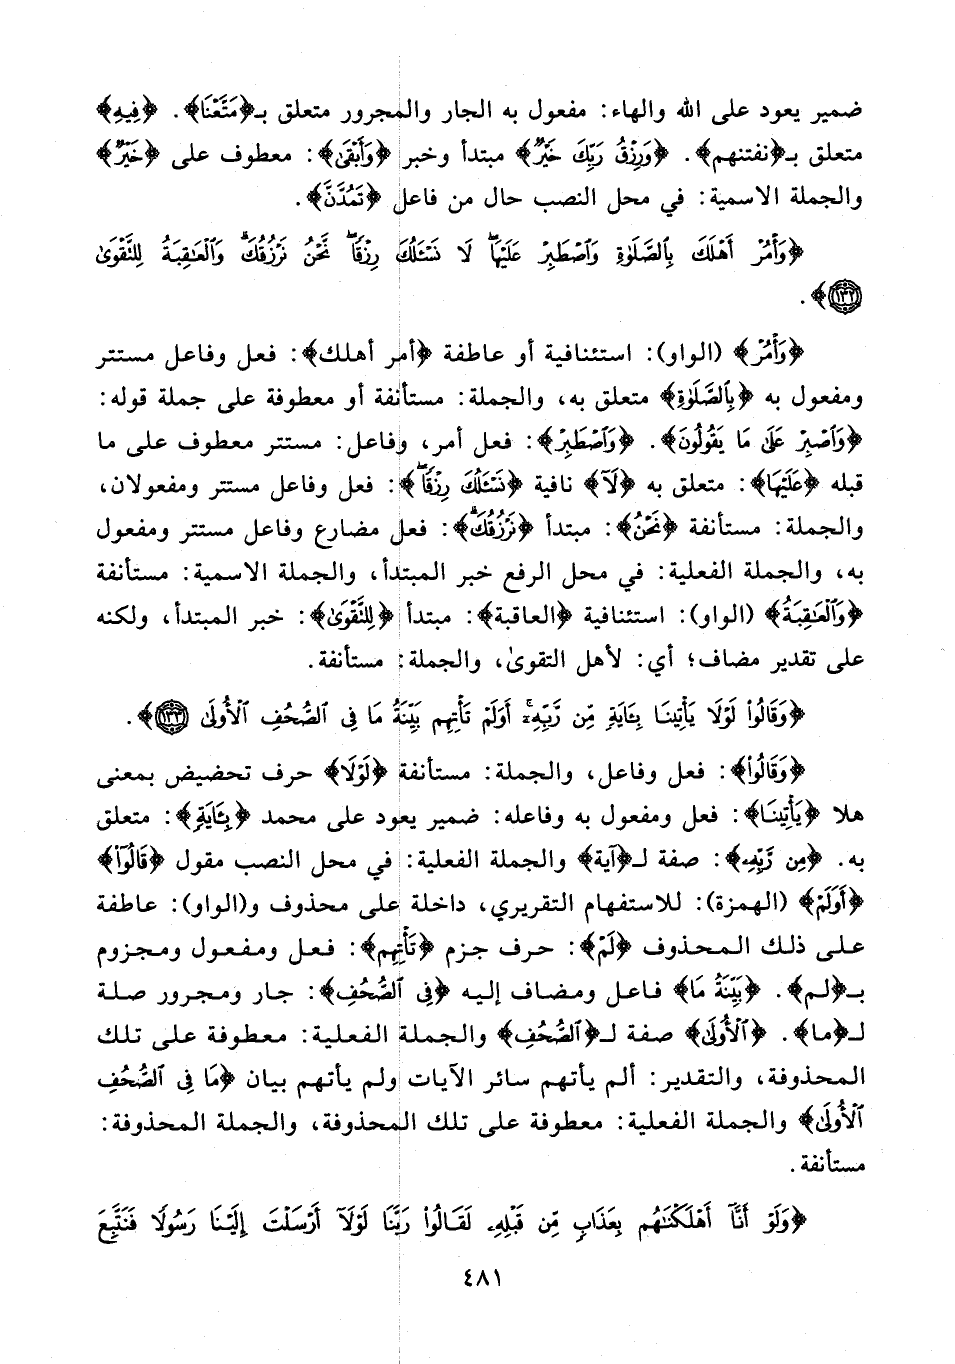 ضمير يعود على الله والهاء: مفعول به الجار والمجرور متعلق بـ﴿مَتَّعْنَا﴾. ﴿فِيهِ﴾
متعلق بـ﴿نفتنهم﴾. ﴿وَرِزْقُ رَبِّكَ خَيْرٌ﴾ مبتدأ وخبر ﴿وَأَبْقَىٰ﴾: معطوف على ﴿خَيْرٌ﴾
والجملة الاسمية: في محل النصب حال من فاعل ﴿تَمُدَّنَّ﴾.
﴿وَأْمُرْ أَهْلَكَ بِٱلصَّلَوٰةِ وَٱصْطَبِرْ عَلَيْهَا ۖ لَا نَسْـَٔلُكَ رِزْقًا ۖ نَّحْنُ نَرْزُقُكَ ۗ وَٱلْعَـٰقِبَةُ لِلتَّقْوَىٰ
١٣٢﴾.
﴿وَأْمُرْ﴾ (الواو): استئنافية أو عاطفة ﴿أمر أهلك﴾: فعل وفاعل مستتر
ومفعول به ﴿بِٱلصَّلَوٰةِ﴾ متعلق به، والجملة: مستأنفة أو معطوفة على جملة قوله:
﴿وَٱصْبِرْ عَلَىٰ مَا يَقُولُونَ﴾. ﴿وَٱصْطَبِرْ﴾: فعل أمر، وفاعل: مستتر معطوف على ما
قبله ﴿عَلَيْهَا﴾: متعلق به ﴿لَآ﴾ نافية ﴿نَسْـَٔلُكَ رِزْقًا ۖ﴾: فعل وفاعل مستتر ومفعولان،
والجملة: مستأنفة ﴿نَّحْنُ﴾: مبتدأ ﴿نَرْزُقُكَ ۗ﴾: فعل مضارع وفاعل مستتر ومفعول
به، والجملة الفعلية: في محل الرفع خبر المبتدأ، والجملة الاسمية: مستأنفة
﴿وَٱلْعَـٰقِبَةُ﴾ (الواو): استئنافية ﴿العاقبة﴾: مبتدأ ﴿لِلتَّقْوَىٰ﴾: خبر المبتدأ، ولكنه
على تقدير مضاف؛ أي: لأهل التقوىٰ، والجملة: مستأنفة.
﴿وَقَالُوا۟ لَوْلَا يَأْتِينَا بِـَٔايَةٍ مِّن رَّبِّهِۦٓ ۚ أَوَلَمْ تَأْتِهِم بَيِّنَةُ مَا فِى ٱلصُّحُفِ ٱلْأُولَىٰ ١٣٣﴾.
﴿وَقَالُوا۟﴾: فعل وفاعل، والجملة: مستأنفة ﴿لَوْلَا﴾ حرف تحضيض بمعنى
هلا ﴿يَأْتِينَا﴾: فعل ومفعول به وفاعله: ضمير يعود على محمد ﴿بِـَٔايَةٍ﴾: متعلق
به. ﴿مِّن رَّبِّهِۦ﴾: صفة لـ﴿آية﴾ والجملة الفعلية: في محل النصب مقول ﴿قَالُوٓا۟﴾
﴿أَوَلَمْ﴾ (الهمزة): للاستفهام التقريري، داخلة على محذوف و(الواو): عاطفة
على ذلك المحذوف ﴿لَمْ﴾: حرف جزم ﴿تَأْتِهِم﴾: فعل ومفعول ومجزوم
بـ﴿لم﴾. ﴿بَيِّنَةُ مَا﴾ فاعل ومضاف إليه ﴿فِى ٱلصُّحُفِ﴾: جار ومجرور صلة
لـ﴿ما﴾. ﴿ٱلْأُولَىٰ﴾ صفة لـ﴿ٱلصُّحُفِ﴾ والجملة الفعلية: معطوفة على تلك
المحذوفة، والتقدير: ألم يأتهم سائر الآيات ولم يأتهم بيان ﴿مَا فِى ٱلصُّحُفِ
ٱلْأُولَىٰ﴾ والجملة الفعلية: معطوفة على تلك المحذوفة، والجملة المحذوفة:
مستأنفة.
﴿وَلَوْ أَنَّآ أَهْلَكْنَـٰهُم بِعَذَابٍ مِّن قَبْلِهِۦ لَقَالُوا۟ رَبَّنَا لَوْلَآ أَرْسَلْتَ إِلَيْنَا رَسُولًا فَنَتَّبِعَ
٤٨١